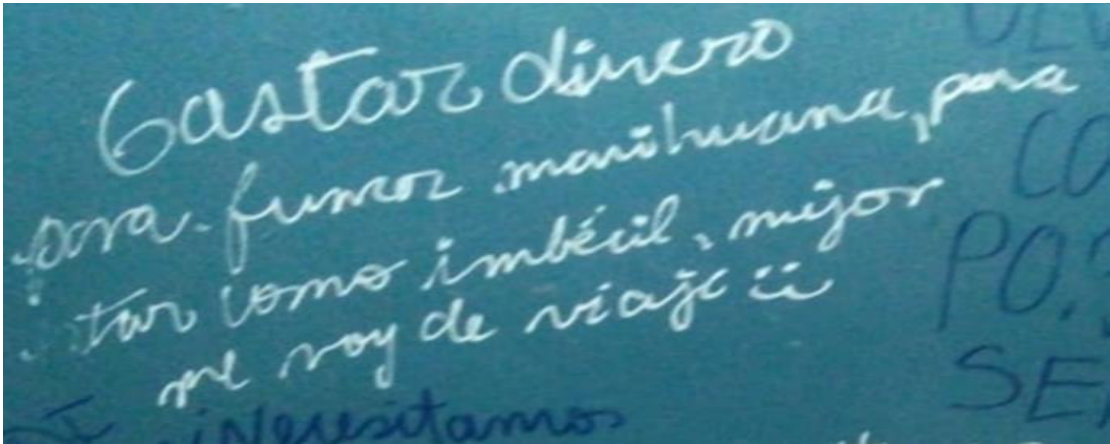 Gastar dinero
para fumar marihuana, para
estar como imbécil, mejor
me voy de viaje ü
Necesitamos
CO
PO.
SE